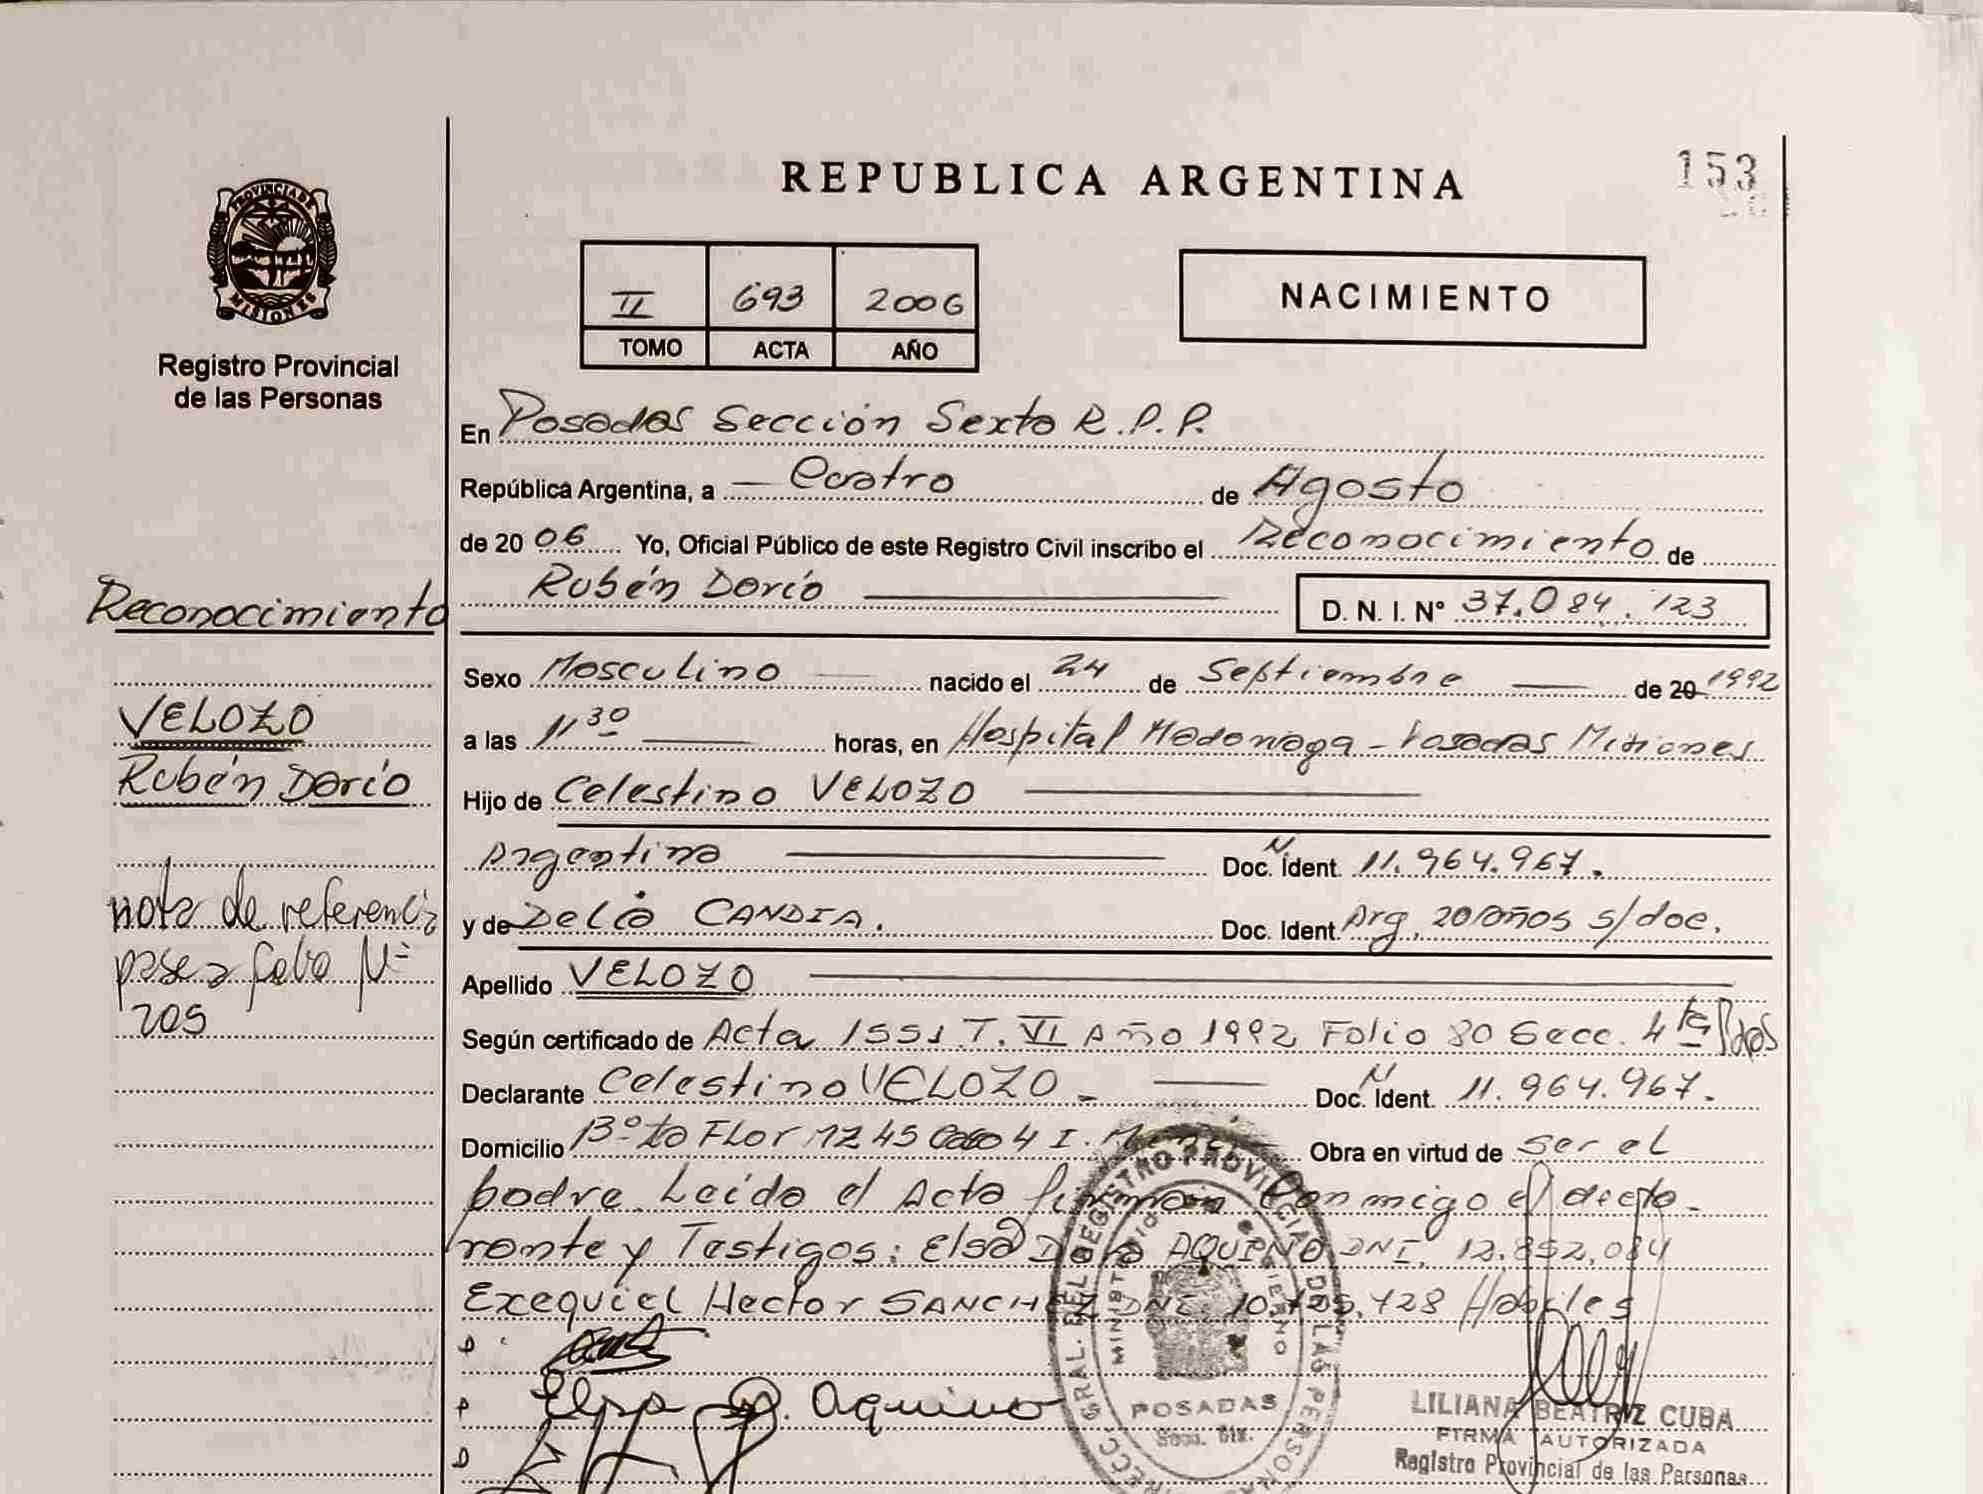 REPUBLICA ARGENTINA
153
PROVINCIA DE
MISIONES
Registro Provincial
de las Personas
II 693 2006
TOMO ACTA AÑO
NACIMIENTO
En Posadas Sección Sexta R.P.P.
República Argentina, a Cuatro de Agosto
de 2006 Yo, Oficial Público de este Registro Civil inscribo el Reconocimiento de
Rubén Darío D. N. I. Nº 37.084.123
Reconocimiento
VELOZO
Rubén Darío
nota de referencia
pase a folio Nº
205
Sexo Masculino nacido el 24 de Septiembre de 20 1992
a las 11 30 horas, en Hospital Madariaga - Posadas Misiones
Hijo de Celestino VELOZO
Argentina Doc. Ident. N. 11.964.967.
y de Delia CANDIA. Doc. Ident. Arg. 20 años s/doc.
Apellido VELOZO
Según certificado de Acta 1551 T. VI Año 1992 Folio 80 Secc. 4ta Pdas
Declarante Celestino VELOZO - Doc. Ident. N 11.964.967.
Domicilio Bº ta Flor 1245 Casa 4 I. Obra en virtud de ser el
padre. Leída el Acta firman conmigo el decla-
rante y Testigos: Elsa AQUINO DNI. 12.852.084
Exequiel Hector SANCHEZ DNI. 428 Habiles
Elsa D. Aquino
DIRECC. GRAL. DEL REGISTRO PROVINCIAL DE LAS PERSONAS
MINISTERIO DE GOBIERNO
POSADAS
Secc. 6ta.
LILIANA BEATRIZ CUBA
FIRMA AUTORIZADA
Registro Provincial de las Personas